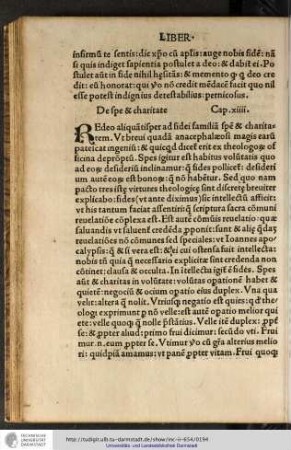 LIBER·
infirmũ te sentis: dic xp̃o cũ apl̃is: auge nobis fidẽ: nã
si quis indiget sapientia postulet a deo: & dabit ei. Po
stulet aũt in fide nihil hęsitãs: & memento ꝙ q̃ deo cre
dit: eũ honorat: qui ṽo nõ credit mẽdacẽ facit quo nil
esse potest indignius detestabilius: perniciosius.
De spe & charitate Cap. xiiii.
REdeo aliquãtisper ad fidei familiã spẽ & charita
tem. Vt breui quadã anacephalæosi magis earũ
pateicat ingeniũ: & quicqd̃ diceť erit ex theologoꝝ of
ficina deproptũ. Spes igitur est habitus volũtatis quo
ad eoꝝ desideriũ inclinamur: q̃ fides pollicet: desideri
um autẽ eoꝝ est bonoꝝ: q̃ nõ habẽtur. Sed quo nam
pacto tres istę virtutes theologicę sint discretę breuiter
explicabo: fides (vt ante diximus) sic intellectũ afficit:
vt his tantum faciat assentiri: q̃ scriptura sacra cõmuni
reuelatiõe cõplexa est. Est autẽ cõmũis reuelatio: quæ
saluandis vt saluenť credẽda ꝓponit: sunt & alię q̃dam
reuelatiões nõ cõmunes sed speciales: vt Ioannes apo
calypsis: q̃ & si vera est: & ei cui ostensa fuit intellecta:
nobis tñ quia q̃ necessario explicitæ sint credenda non
cõtinet: clausa & occulta. In intellectu igiť ẽ fides. Spes
aũt & charitas in volũtate: voluntas opationẽ habet &
quietẽ: negociũ & ocium opatio eius duplex. Vna qua
velit: altera q̃ nolit. Vtriusq̃ negatio est quies: q̃d theo
logi exprimunt ꝑ nõ velle: est autẽ opatio melior qui
ete: velle quoq̃ q̃ nolle p̃stãtius. Velle itẽ duplex: ꝓpť
se: & ꝓpter aliud: primo frui dicimur: secũdo vti. Frui
mur. n. eum ꝓpter se. Vtimur ṽo cũ gr̃a alterius melio
ri: quidpiã amamus: vt pane ꝓpter vitam. Frui quoq̃
TECHNISCHE
UNIVERSITÄT
DARMSTADT
http://tudigit.ulb.tu-darmstadt.de/show/inc-ii-654/0194
Universitäts- und Landesbibliothek Darmstadt